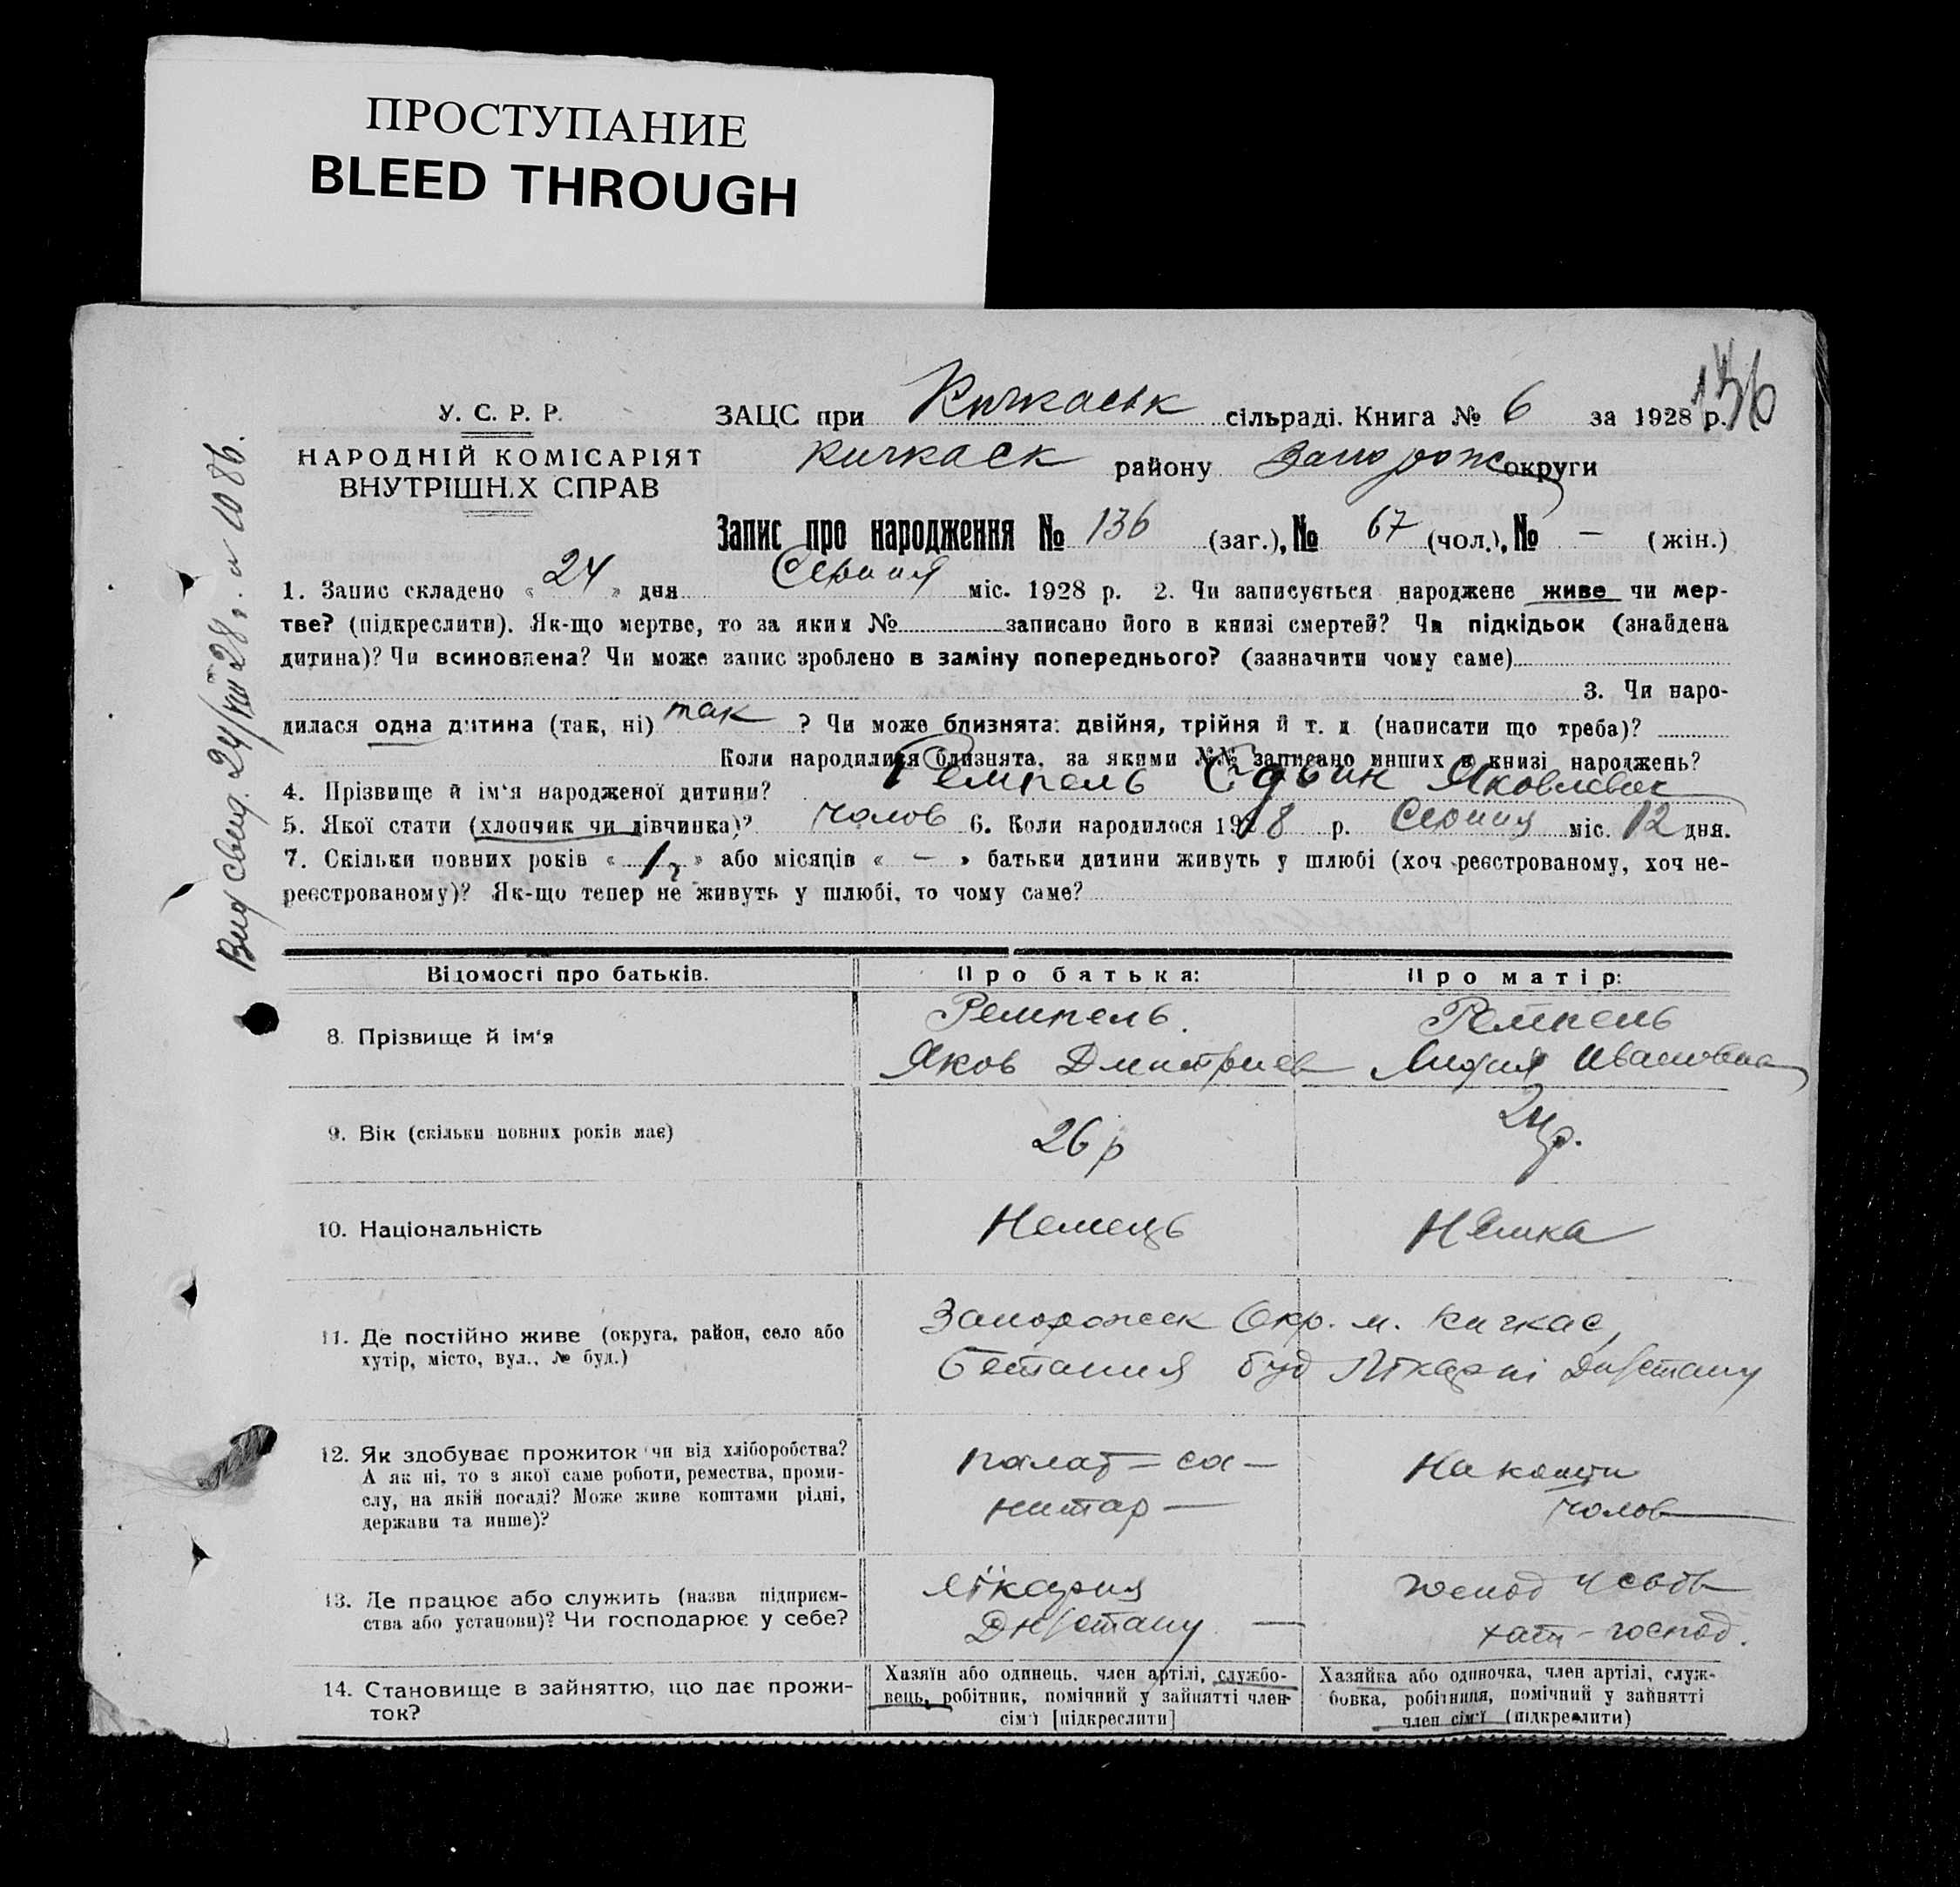 ПРОСТУПАНИЕ
BLEED THROUGH
136
У. С. Р. Р.
НАРОДНІЙ КОМІСАРІЯТ
ВНУТРІШНІХ СПРАВ
ЗАЦС при Кичкаськ сільраді. Книга № 6 за 1928 р.
Кичкаск району Запорож округи
Запис про народження № 136 (заг.), № 67 (чол.), № – (жін.)
1. Запис складено « 24 » дня Серпня міс. 1928 р. 2. Чи записується народжене живе чи мер-
тве? (підкреслити). Як-що мертве, то за яким № записано його в книзі смертей? Чи підкідьок (знайдена
дитина)? Чи всиновлена? Чи може запис зроблено в заміну попереднього? (зазначити чому саме)
3. Чи наро-
дилася одна дитина (так, ні) так ? Чи може близнята: двійня, трійня й т. д. (написати що треба)?
Коли народилися близнята, за якими №№ записано инших в книзі народжень?
4. Прізвище й ім'я народженої дитини? Ремпель Едвин Яковлевич
5. Якої стати (хлопчик чи дівчинка)? чолов 6. Коли народилося 1928 р. Серпня міс. 12 дня.
7. Скільки повних років « 1 » або місяців « – » батьки дитини живуть у шлюбі (хоч реєстрованому, хоч не-
реєстрованому)? Як-що тепер не живуть у шлюбі, то чому саме?
Вид свид. 24/VIII 28 г. № 1086.
Відомості про батьків. Про батька: Про матір:
8. Прізвище й ім'я
Ремпель Ремпель
Яков Дмитриев Лидия Ивановна
9. Вік (скільки повних років має) 26 р 24 р.
10. Національність Немець Немка
11. Де постійно живе (округа, район, село або
хутір, місто, вул., № буд.)
Запорожск Окр. м. Кичкас,
Бетания буд Лікарні Дн/стану
12. Як здобуває прожиток чи від хліборобства?
А як ні, то з якої саме роботи, ремества, проми-
слу, на якій посаді? Може живе коштами рідні,
держави та инше)?
палат – са – На кошти
нитар – чолов
13. Де працює або служить (назва підприєм-
ства або установи)? Чи господарює у себе?
Лікарня господ у своїй
Дн/стану – хати – господ.
14. Становище в зайняттю, що дає прожи-
ток?
Хазяїн або одинець, член артілі, службо-
вець, робітник, помічний у зайнятті член
сім'ї [підкреслити]
Хазяйка або одиночка, член артілі, служ-
бовка, робітниця, помічний у зайнятті
член сім'ї (підкреслити)